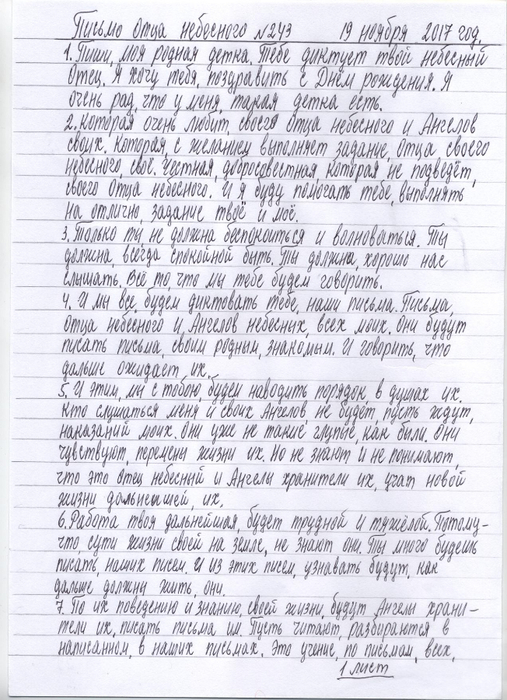 Письмо Отца небесного №243 19 ноября 2017 год.
1. Пиши, моя родная детка. Тебе диктует твой небесный
Отец. Я хочу тебя, поздравить с Днём рождения. Я
очень рад, что у меня, такая детка есть.
2. Которая очень любит, своего Отца небесного и Ангелов
своих. Которая, с желанием выполняет задание, Отца своего
небесного, своё. Честная, добросовестная которая не подведёт,
своего Отца небесного. И я буду помогать тебе, выполнять
на отлично, задание твоё и моё.
3. Только ты, не должна беспокоиться и волноваться. Ты
должна, всегда спокойной быть. Ты должна, хорошо нас
слышать. Всё то, что мы тебе будем говорить.
4. И мы все, будем диктовать тебе, наши письма. Письма,
Отца небесного и Ангелов небесных, всех моих. Они будут
писать письма, своим родным, знакомым. И говорить, что
дальше ожидает их.
5. И этим, мы с тобою, будем наводить порядок в душах их.
Кто слушаться меня и своих Ангелов, не будет, пусть ждут,
наказаний моих. Они уже не такие глупые, как были. Они
чувствуют, перемены жизни их. Но не знают и не понимают,
что это Отец небесный и Ангелы хранители их, учат новой
жизни дальнейшей, их.
6. Работа твоя дальнейшая, будет трудной и тяжёлой. Потому-
что, сути жизни своей на земле, не знают они. Ты много будешь
писать, наших писем. И из этих писем, узнавать будут, как
дальше должны жить, они.
7. По их поведению и знанию, своей жизни, будут Ангелы храни-
тели их, писать письма им. Пусть читают, разбираются в
написанном, в наших письмах. Это учение, по письмам, всех,
1 лист